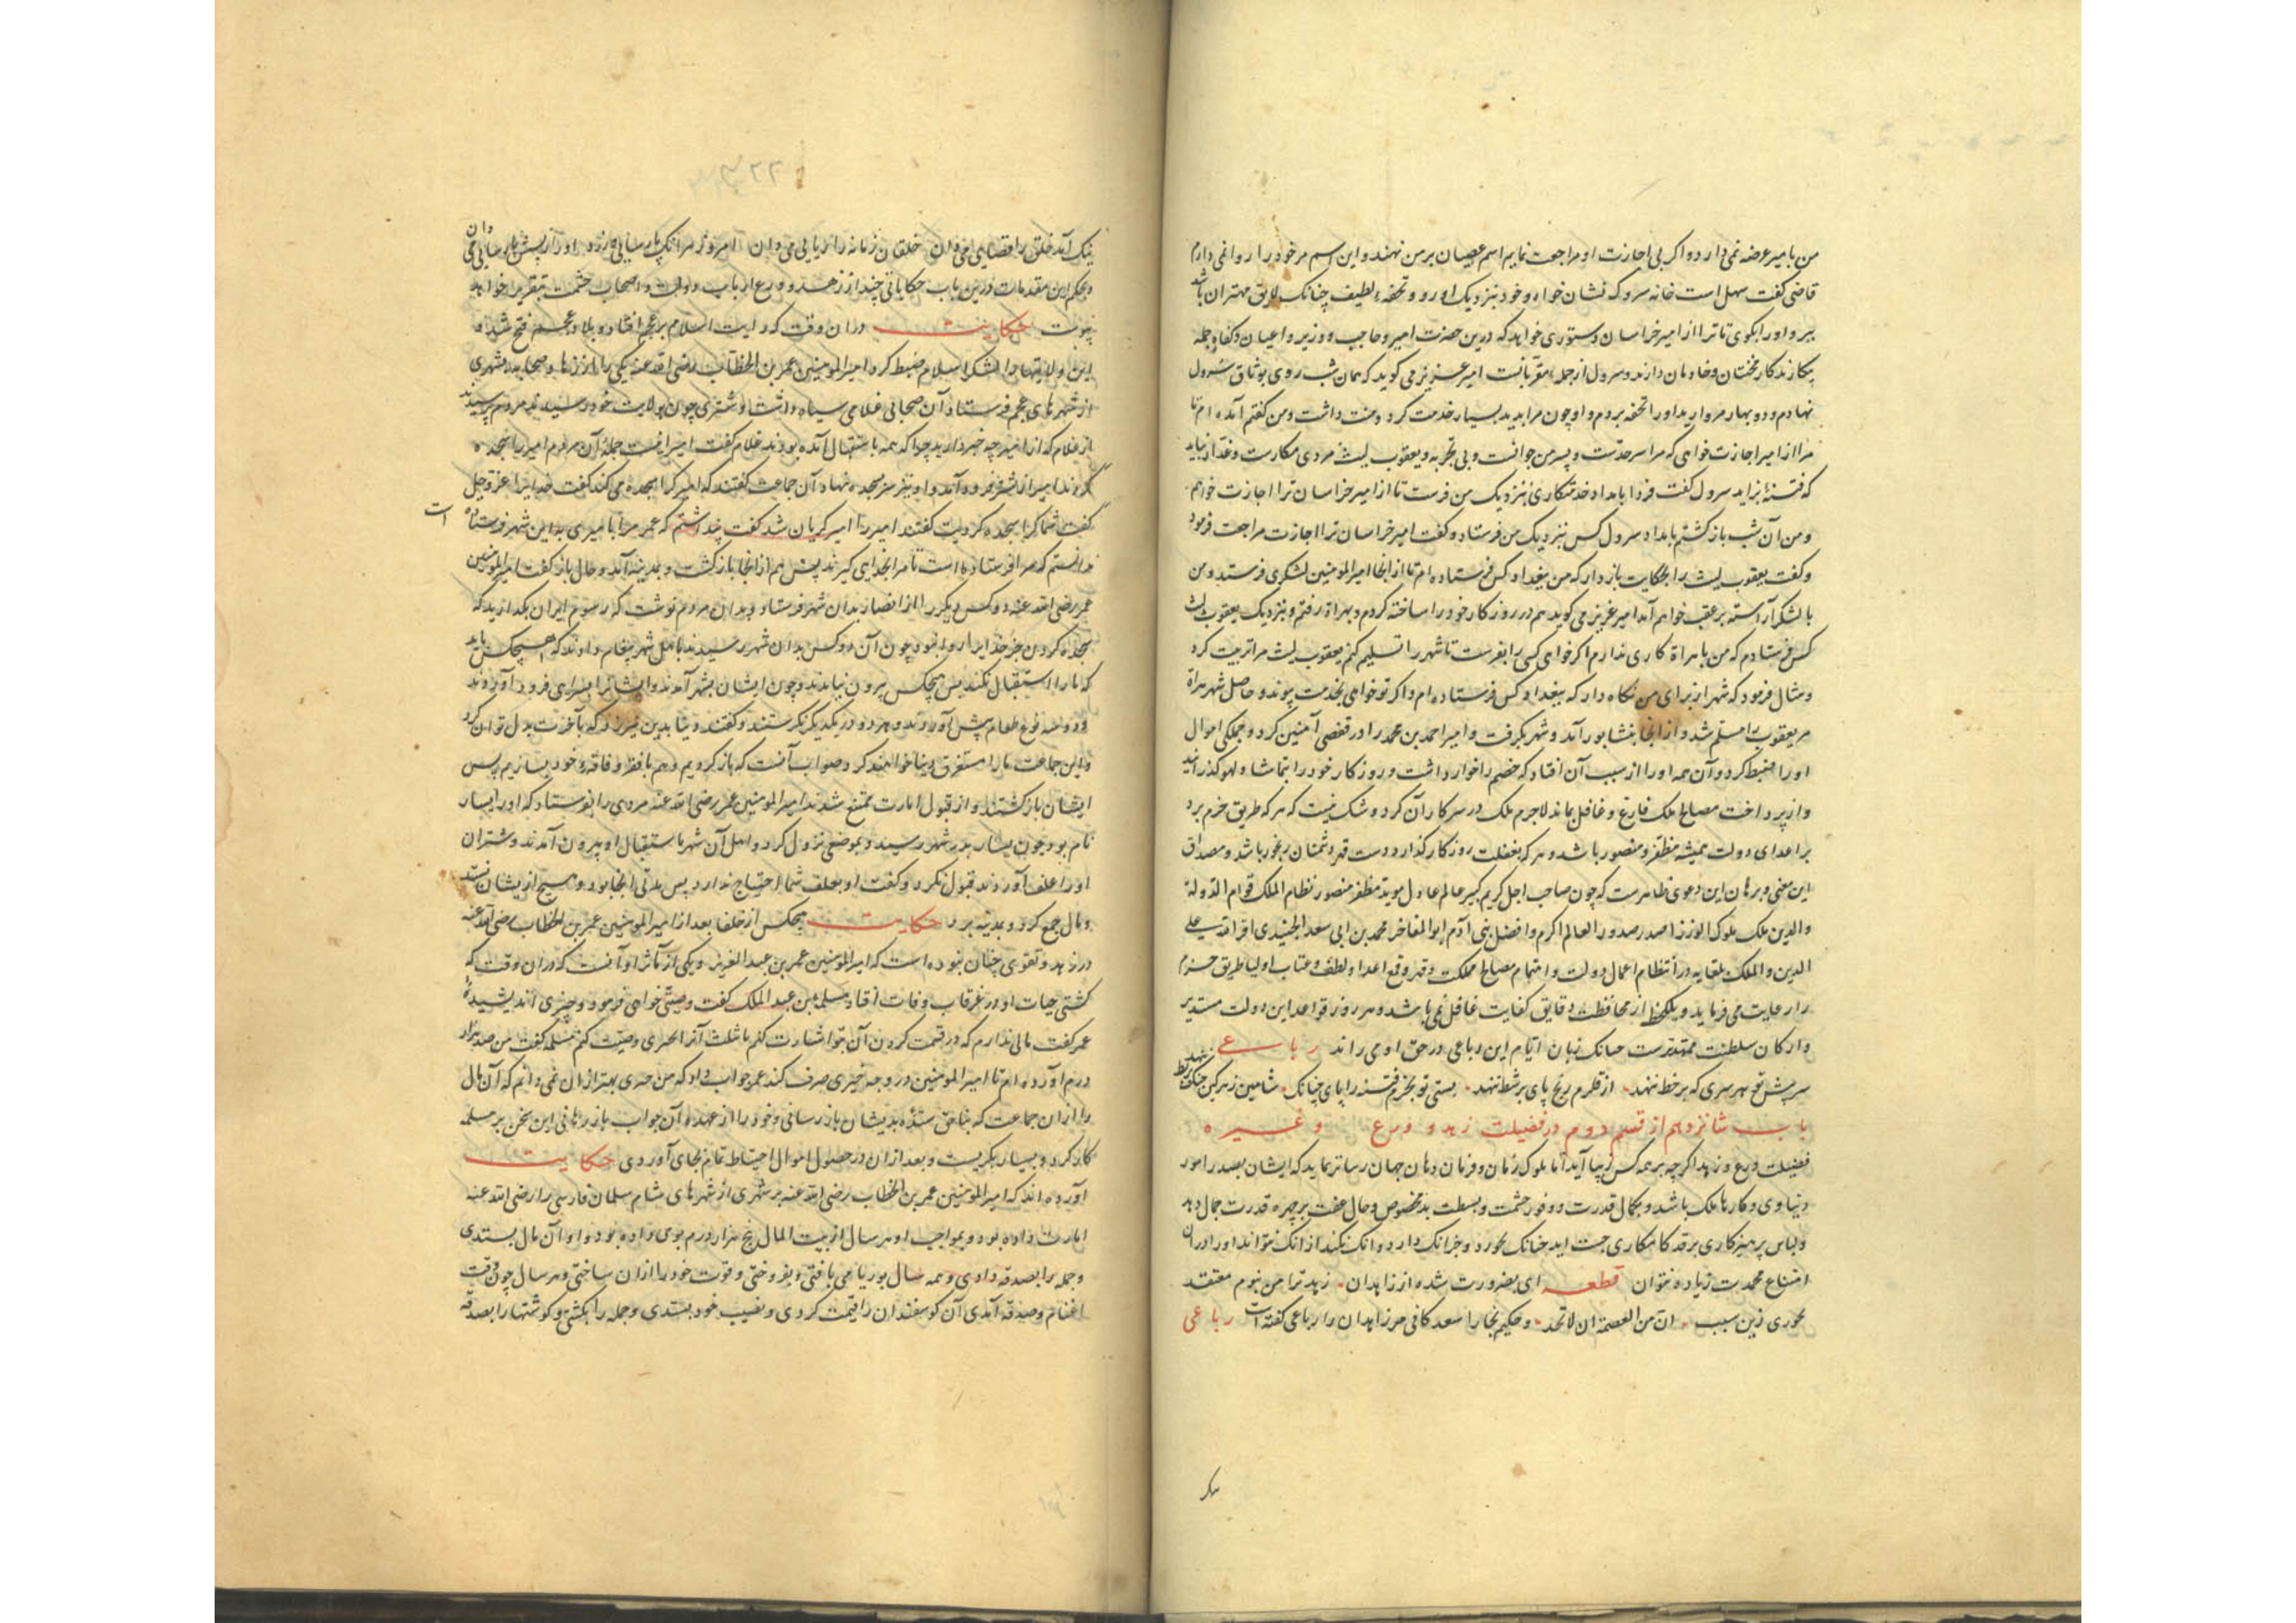 من بامیر عرضه نمی دارد و اگر بی اجازت او مراجعت نمایم اسم عصیان بر من نهند و این اسم مر خود را روا نمی دارم
قاضی گفت سهل است خانه سرو که نشان خواه و خود نزدیک او رو و تحفهٔ لطیف چنانک لایق مهتران باشد
ببر و او را بگوی تا ترا از امیر خراسان دستوری خواهد که درین حضرت امیر و حاجب و وزیر و اعیان و کفاه جمله
نهادم و دو بهار مروارید او را تحفه بردم و او چون مرا بدید بسیار خدمت کرد و منت داشت و من گفتم آمده ام تا
مرا از امیر اجازت خواهی که مرا سر حدّست و پسر من جوانست و بی تجربه و یعقوب لیث مردی مکارست و غدّار نباید
که فتنهٔ بزاید سرول گفت فردا بامداد خدمتکاری بنزدیک من فرست تا از امیر خراسان ترا اجازت خواهم
و من آن شب بازگشتم بامداد سرول کس بنزدیک من فرستاد و گفت امیر خراسان ترا اجازت مراجعت فرمود
و گفت یعقوب لیث را بحکایت باز دار که من ببغداد کس فرستاده ام تا از انجا امیر المومنین لشکری فرستد و من
با لشکر آراسته بر عقب خواهم آمد امیر عزیز می گوید هم در روز کار خود را ساخته کردم و بهراة رفتم و بنزدیک یعقوب لیث
کس فرستادم که من با هراة کاری ندارم اگر خواهی کسی را بفرست تا شهر را تسلیم کنم یعقوب لیث مرا تربیت کرد
و مثال فرمود که شهر از برای من نگاه دار که ببغداد کس فرستاده ام و اگر تو خواهی بخدمت پیوند و حاصل شهر هراة
مر یعقوب را مسلّم شد و از انجا بنشابور آمد و شهر بگرفت و امیر احمد بن محمد را در قفصی آهنین کرد و جملگی اموال
او را ضبط کرد و آن همه او را از سبب آن افتاد که خصم را خوار داشت و روزگار خود را بتماشا و لهو گذرانید
و از پرداخت مصالح ملک فارغ و غافل بماند لاجرم ملک در سر کار آن کرد و شک نیست که هر که طریق حزم برد
بر اعدای دولت همیشه مظفر و منصور باشد و هر که بغفلت روزگار گذارد دست قهر دشمنان رنجور باشد و مصداق
این معنی و برهان این دعوی ظاهرست که چون صاحب اجل کریم کبیر عالم عادل موید مظفر منصور نظام الملک قوام الدوله
والدین ملک ملوک الوزرا صدر صدور العالم اکرم و افضل بنی آدم ابو المفاخر محمد بن ابی سعد الجنیدی
الدین والملک بلقایه در انتظام اعمال دولت و اهتمام مصالح مملکت و قهر و قمع اعدا و لطف و عتاب اولیا طریق حزم
را رعایت می فرماید و یک لحظه از محافظت دقایق کفایت غافل نمی باشد و هر روز قواعد این دولت
و ارکان سلطنت ممهدترست چنانک زبان ایام این رباعی در حق او می راند رباعی
سر پیش تو هر سری که بر خط ننهد از قلزم رنج پای بر شط ننهد بستی تو بحزم فتنه را پای چنانک
باب شانزدهم از قسم دوم در فضیلت زهد و ورع و غیره
فضیلت ورع و زهد اگر چه بر همه کس زیبا آید اما ملوک زمان و فرمان دهان جهان را سازتر نماید که ایشان بصدد امور
دنیاوی و کارها ملک باشند و بکمال قدرت و وفور حشمت و بسطت ید مخصوص و خال عفت بر چهره قدرت جمال دهد
و لباس پرهیزکاری بر قد کامکاری چست آید چنانک بخورد و جزانک دارد و انک نکند از انک نتواند او را در ان
امتناع محمدت زیاده نتوان قطعه ای بضرورت شده از زاهدان زهد ترا من نبوم معتقد
نخوری زین سبب انّ من العصمة ان لا تجد و حکیم بخارا سعد کافی مر زاهدان را رباعی گفته است رباعی
و بحکم این مقدمات درین باب حکایاتی چند از زهد و ورع ارباب دولت و اصحاب حشمت بتقریر خواهد
پیوست حکایت در ان وقت که رایت اسلام بر عجم افتاد و بلاد عجم فتح شد و
این ولایتها را لشکر اسلام ضبط کرد امیر المومنین عمر بن الخطاب رضی الله عنه یکی را از صحابه بشهری
از شهرهای عجم فرستاد آن صحابی غلامی سیاه داشت و شتری چون بولایت خود رسید مردم پرسیدند
از غلام که از امیر چه خبر دارید چرا که همه باستقبال آمده بودند غلام گفت امیر اینست جملهٔ آن مردم امیر را سجده
کردند امیر از شتر فرود آمد و او نیز سر بسجده نهاد آن جماعت گفتند که امیر کرا سجده می کند گفت خدایرا عزّ و جل
گفت شما کرا سجده کردیت گفتند امیر را امیر گریان شد گفت پنداشتم که عمر مرا بامیری به این شهر فرستاده است
ندانستم که مرا فرستاده است تا مرا بخدایی گیرند پس هم از انجا بازگشت و بمدینه آمد و حال بازگفت امیر المومنین
عمر رضی الله عنه دو کس دیگر را از انصار بدان شهر فرستاد و بدان مردم نوشت که رسوم ایران بگذارید که
سجده کردن جز خدایرا روا نبود چون آن دو کس بدان شهر رسیدند باهل شهر پیغام دادند که هیچکس نباید
که ما را استقبال کند پس هیچکس بیرون نیامدند و چون ایشان بشهر آمدند و ایشانرا بسرای فرود آوردند
و دو سه نوع طعام پیش آوردند و هر دو در یکدیگر نگرستند و گفتند دنیا بدین نیرزد که بآخرت بدل توان کرد
و این جماعت ما را مستغرق دنیا خواهند کرد صواب آنست که بازگردیم و هم با فقر و فاقهٔ خود بسازیم پس
ایشان بازگشتند و از قبول امارت ممتنع شدند امیر المومنین عمر رضی الله عنه مردی را بفرستاد که او را یسار
نام بود چون یسار بدر شهر رسید و بموضعی نزول کرد و اهل آن شهر باستقبال او بیرون آمدند و شتران
او را علف آوردند قبول نکرد و گفت او بعلف شما احتیاج ندارد پس مدتی انجا بود و هیچ از یشان نستد
و مال جمع کرد و بمدینه برد حکایت هیچکس از خلفا بعد از امیر المومنین عمر بن الخطاب رضی الله عنه
در زهد و تقوی چنان نبوده است که امیر المومنین عمر بن عبد العزیز و یکی از مآثر او آنست که در ان وقت که
کشتی حیات او در غرقاب وفات افتاد مسلمة بن عبد الملک گفت وصیّتی خواهی فرمود و چیزی اندیشیدهٔ
عمر گفت مالی ندارم که در قسمت کردن آن بتو اشارت کنم یا ثلث آنرا بخیری وصیت کنم مسلمه گفت من صد هزار
درم آورده ام تا امیر المومنین در وجه خیری صرف کند عمر جواب داد که من خیری بهتر از ان نمی دانم که آن مال
را از ان جماعت که بناحق ستدهٔ بدیشان باز رسانی و خود را از عهده آن جواب باز رهانی این سخن بر مسلمه
کار کرد و بسیار بگریست و بعد از ان در حصول اموال احتیاط تمام بجای آوردی حکایت
آورده اند که امیر المومنین عمر بن الخطاب رضی الله عنه بر شهری از شهرهای شام سلمان فارسی را رضی الله عنه
امارت داده بود و بمواجب او هر سال از بیت المال پنج هزار درم بوی داده بود و او آن مال بستدی
و جمله را بصدقه دادی و همه سال بوریا می بافتی و بفروختی و قوت خود را از ان ساختی و هر سال چون وقت
اغنام و صدقه آمدی آن گوسفندان را قیمت کردی و نصیب خود بستدی و جمله را بکشتی و گوشتها را بصدقه